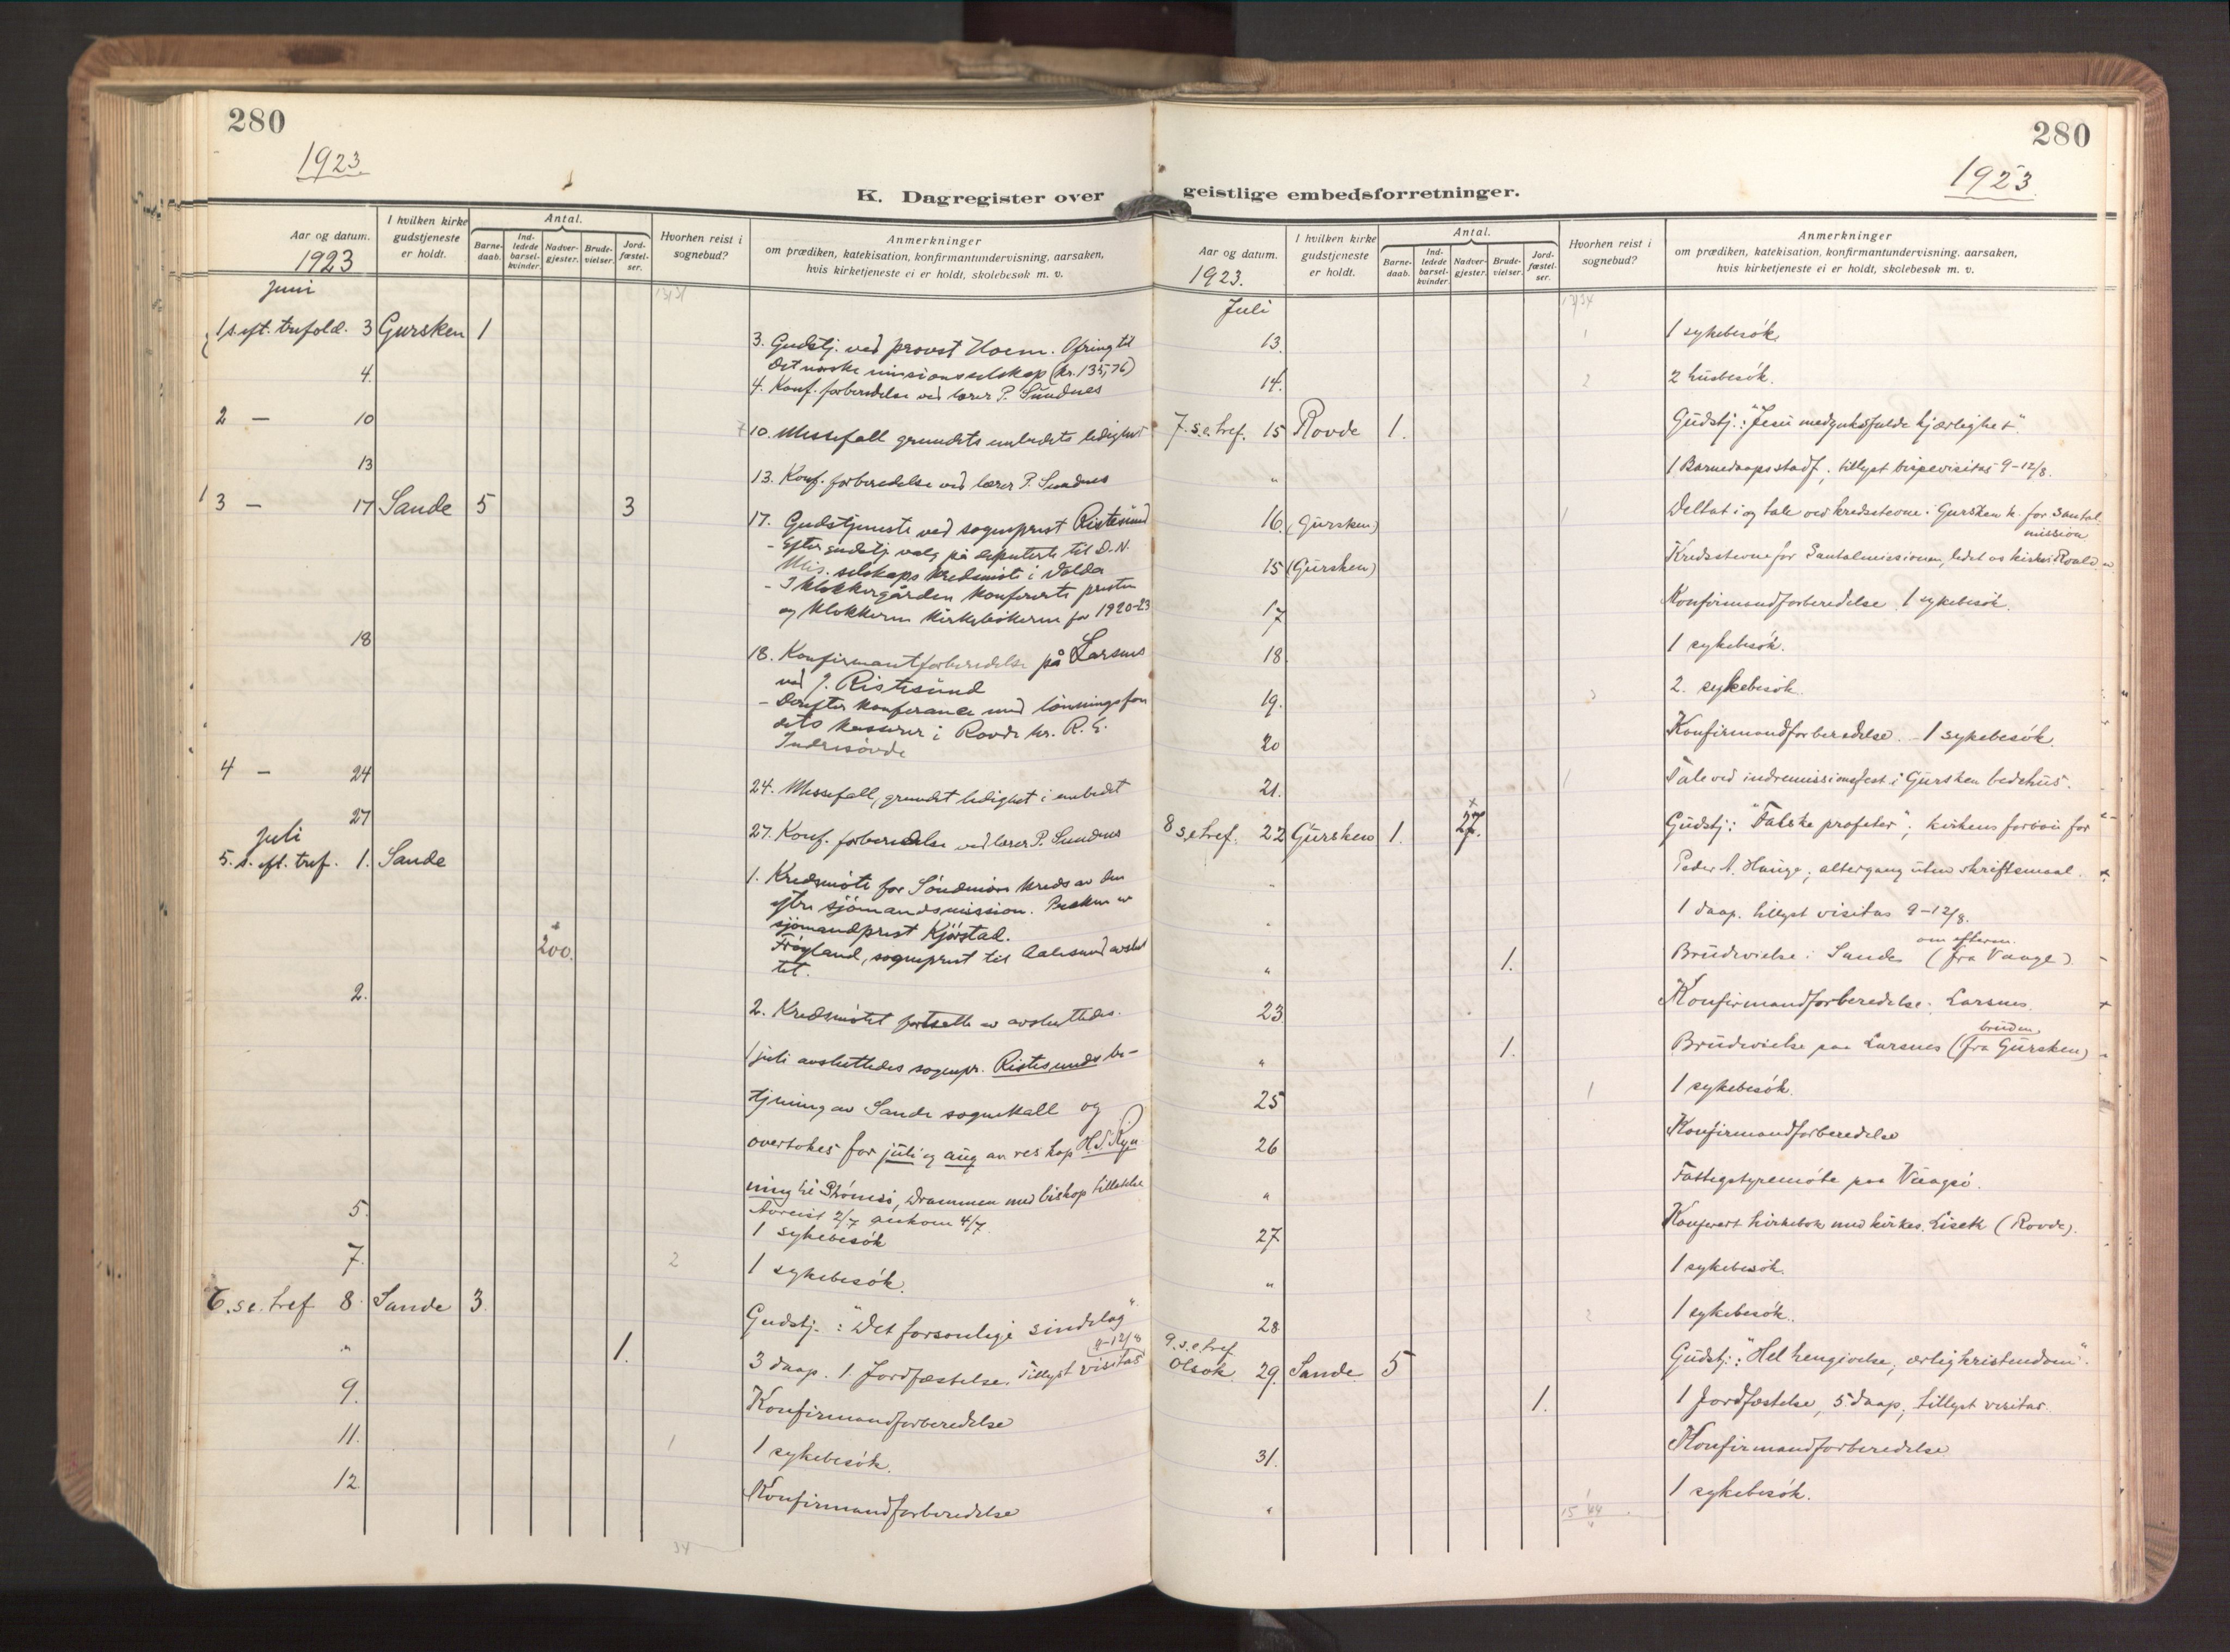 280
1923
K. Dagregister over
Aar og datum.
1923
I hvilken kirke
gudstjeneste
er holdt.
Antal.
Barne-
daab.
Ind-
ledede
barsel-
kvinder.
Nadver-
gjester.
Brude-
vielser.
Jord-
fæstel-
ser.
Hvorhen reist i
sognebud?
Anmerkninger
om prædiken, katekisation, konfirmantundervisning, aarsaken,
hvis kirketjeneste ei er holdt, skolebesøk m. v.
Juni
1 s. eft. trefold. 3 Gursken 1
3. Gudstj. ved provst Hoem. Ofring til
Det norske misionsselskap (kr. 135,76)
4.
4. Konf. forberedelse ved lærer P. Sundnes
2 — 10
10. Messefall grundets embedets ledighet
13
13. Konf. forberedelse ved lærer P. Sundnes
3 — 17 Sande 5 3
17. Gudstjeneste ved sogneprest Ristesund
- Efter gudstj. valg på deputerte til D. N.
Mis. selskaps kredsmøte i Volda
- I klokkergården konfererte presten
og klokkeren kirkebøkerne for 1920-23
18
18. Konfirmantforberedelse på Larsnes
ved J. Ristesund
- Derefter konferance med lønningsfon
dets kasserer i Rovde hr. R. E.
Indresøvde
4 — 24
24. Messefall, grundet ledighet i embedet
27
27. Konf. forberedelse ved lærer P. Sundnes
Juli
5. s. eft. tref. 1. Sande
1. Kredsmøte for Søndmøre kreds av den
indre sjømandsmission.
sjømandprest Kjørstad.
200.
Frøyland, sogneprest til Aalesund avslut
tet.
2.
2. Kredsmøtet fortsatte av avsluttedes.
1 juli avsluttedes sognepr. Ristesunds be-
tjening av Sande sognekall og
overtokes for juli og aug av res kap H. S. Ryn
ning til Strømsø, Drammen med biskop tillatelse
Avreist 2/7 ankom 4/7.
5.
1 sykebesøk
7. 2
1 sykebesøk.
6. s. e. tref 8. Sande 3.
Gudstj.: "Det forsonlige sindelag"
" 1.
9-12/8
3 daap. 1. Jordfæstelse. Tillyst visitas
9.
Konfirmandforberedelse
11. 1
1 sykebesøk.
12
Konfirmandforberedelse
34
280
1923.
geistlige embedsforretninger.
Aar og datum.
1923.
I hvilken kirke
gudstjeneste
er holdt.
Antal.
Barne-
daab.
Ind-
ledede
barsel-
kvinder.
Nadver-
gjester.
Brude-
vielser.
Jord-
fæstel-
ser.
Hvorhen reist i
sognebud?
Anmerkninger
om prædiken, katekisation, konfirmantundervisning, aarsaken,
hvis kirketjeneste ei er holdt, skolebesøk m. v.
Juli
13. 1 1 sykebesøk
14. 2 2 husbesøk.
7. s. e. tref. 15 Rovde 1. Gudstj.: "Jesu medynksfulde kjærlighet".
" 1 Barnedaapsstadf.; tillyst bispevisitas 9-12/8.
16. (Gursken) 1 Deltat i og tale ved kredsstevne i Gursken k. for Santal-
mission
15 (Gursken) Kredsstevne for Santalmissionen, ledet av kirkes. Roald
17 Konfirmandforberedelse. 1 sykebesøk.
18. 1 sykebesøk.
19. 2. sykebesøk.
20 Konfirmandforberedelse. - 1 sykebesøk.
21. 1 Tale ved indremissionsfest i Gursken bedehus.
8 s. e. tref. 22 Gursken 1. 27. Gudstj: "Falske profeter"; kirkens forbøn for
" Peder A. Hauge; altergang uten skriftemaal.
" 1 daap. tillyst visitas 9-12/8.
" 1. Brudevielse i Sande om efterm. (fra Vaage).
23 Konfirmandforberedelse: Larsnes.
" 1. Brudevielse paa Larsnes (bruden fra Gursken)
25 1 1 sykebesøk.
26 Konfirmandforberedelse
" Fattigstyremøte paa Vaagsø.
27 Konferert kirkebok med kirkes. Liseth (Rovde).
" 1 sykebesøk.
28 2 1 sykebesøk.
9. s. e. tref
Olsok. 29. Sande 5 Gudstj: "Hel hengivelse, ærlig kristendom".
1. 1 Jordfæstelse, 5. daap; tillyst visitas.
31. Konfirmandforberedelse
" 1 sykebesøk.
15 44